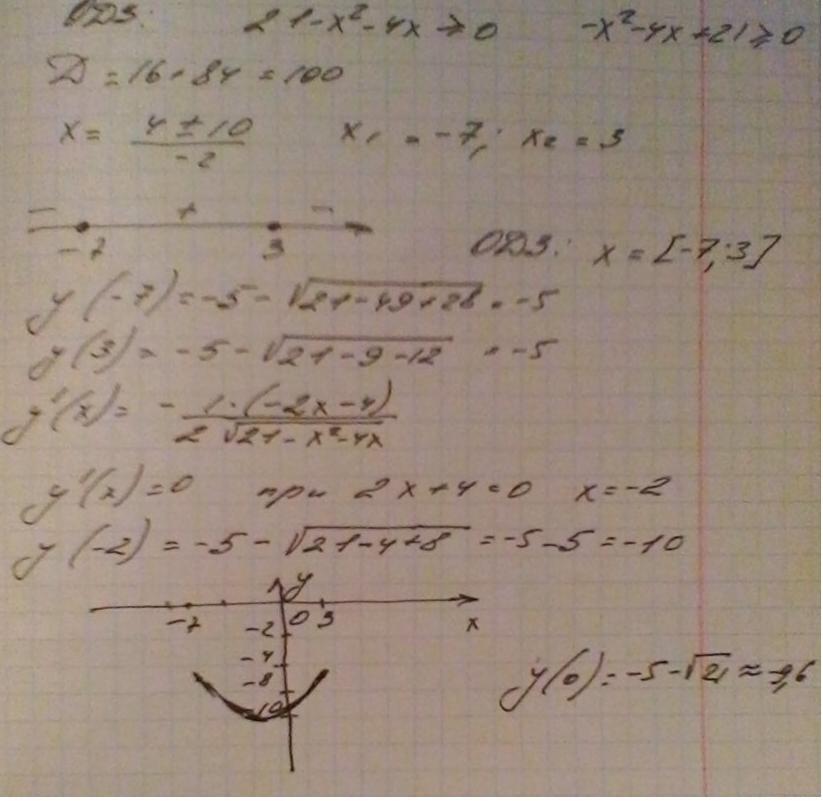 ОДЗ: 21-x²-4x ≥ 0 -x²-4x+21 ≥ 0
D = 16+84 = 100
x = (4±10)/(-2) x₁ = -7; x₂ = 3
- + -
-7 3
ОДЗ: x = [-7;3]
y(-7) = -5 - √(21-49+28) = -5
y(3) = -5 - √(21-9-12) = -5
y'(x) = - (1·(-2x-4))/(2√(21-x²-4x))
y'(x) = 0 при 2x+4=0 x=-2
y(-2) = -5 - √(21-4+8) = -5-5 = -10
y
-7 0 3 x
-2
-4
-8
-10
y(0) = -5-√21 ≈ -9,6